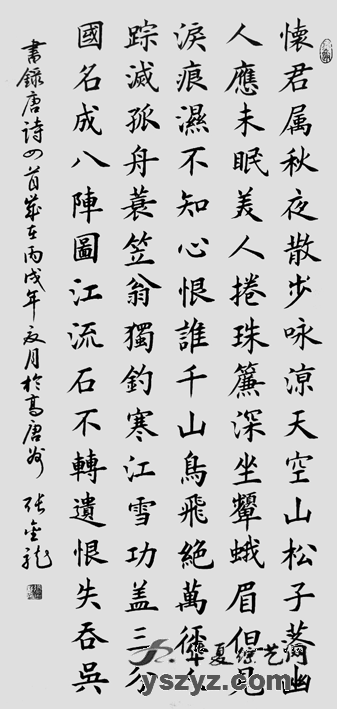 懷君属秋夜散步咏涼天空山松子落幽
人應未眠美人捲珠簾深坐顰蛾眉但見
淚痕濕不知心恨誰千山鳥飛絶萬徑人
踪滅孤舟蓑笠翁獨釣寒江雪功盖三分
國名成八陣圖江流石不轉遺恨失吞吴
書錄唐詩四首歲在丙戌年夏月於高唐州 張金龍
夏綜艺
yszyz.com